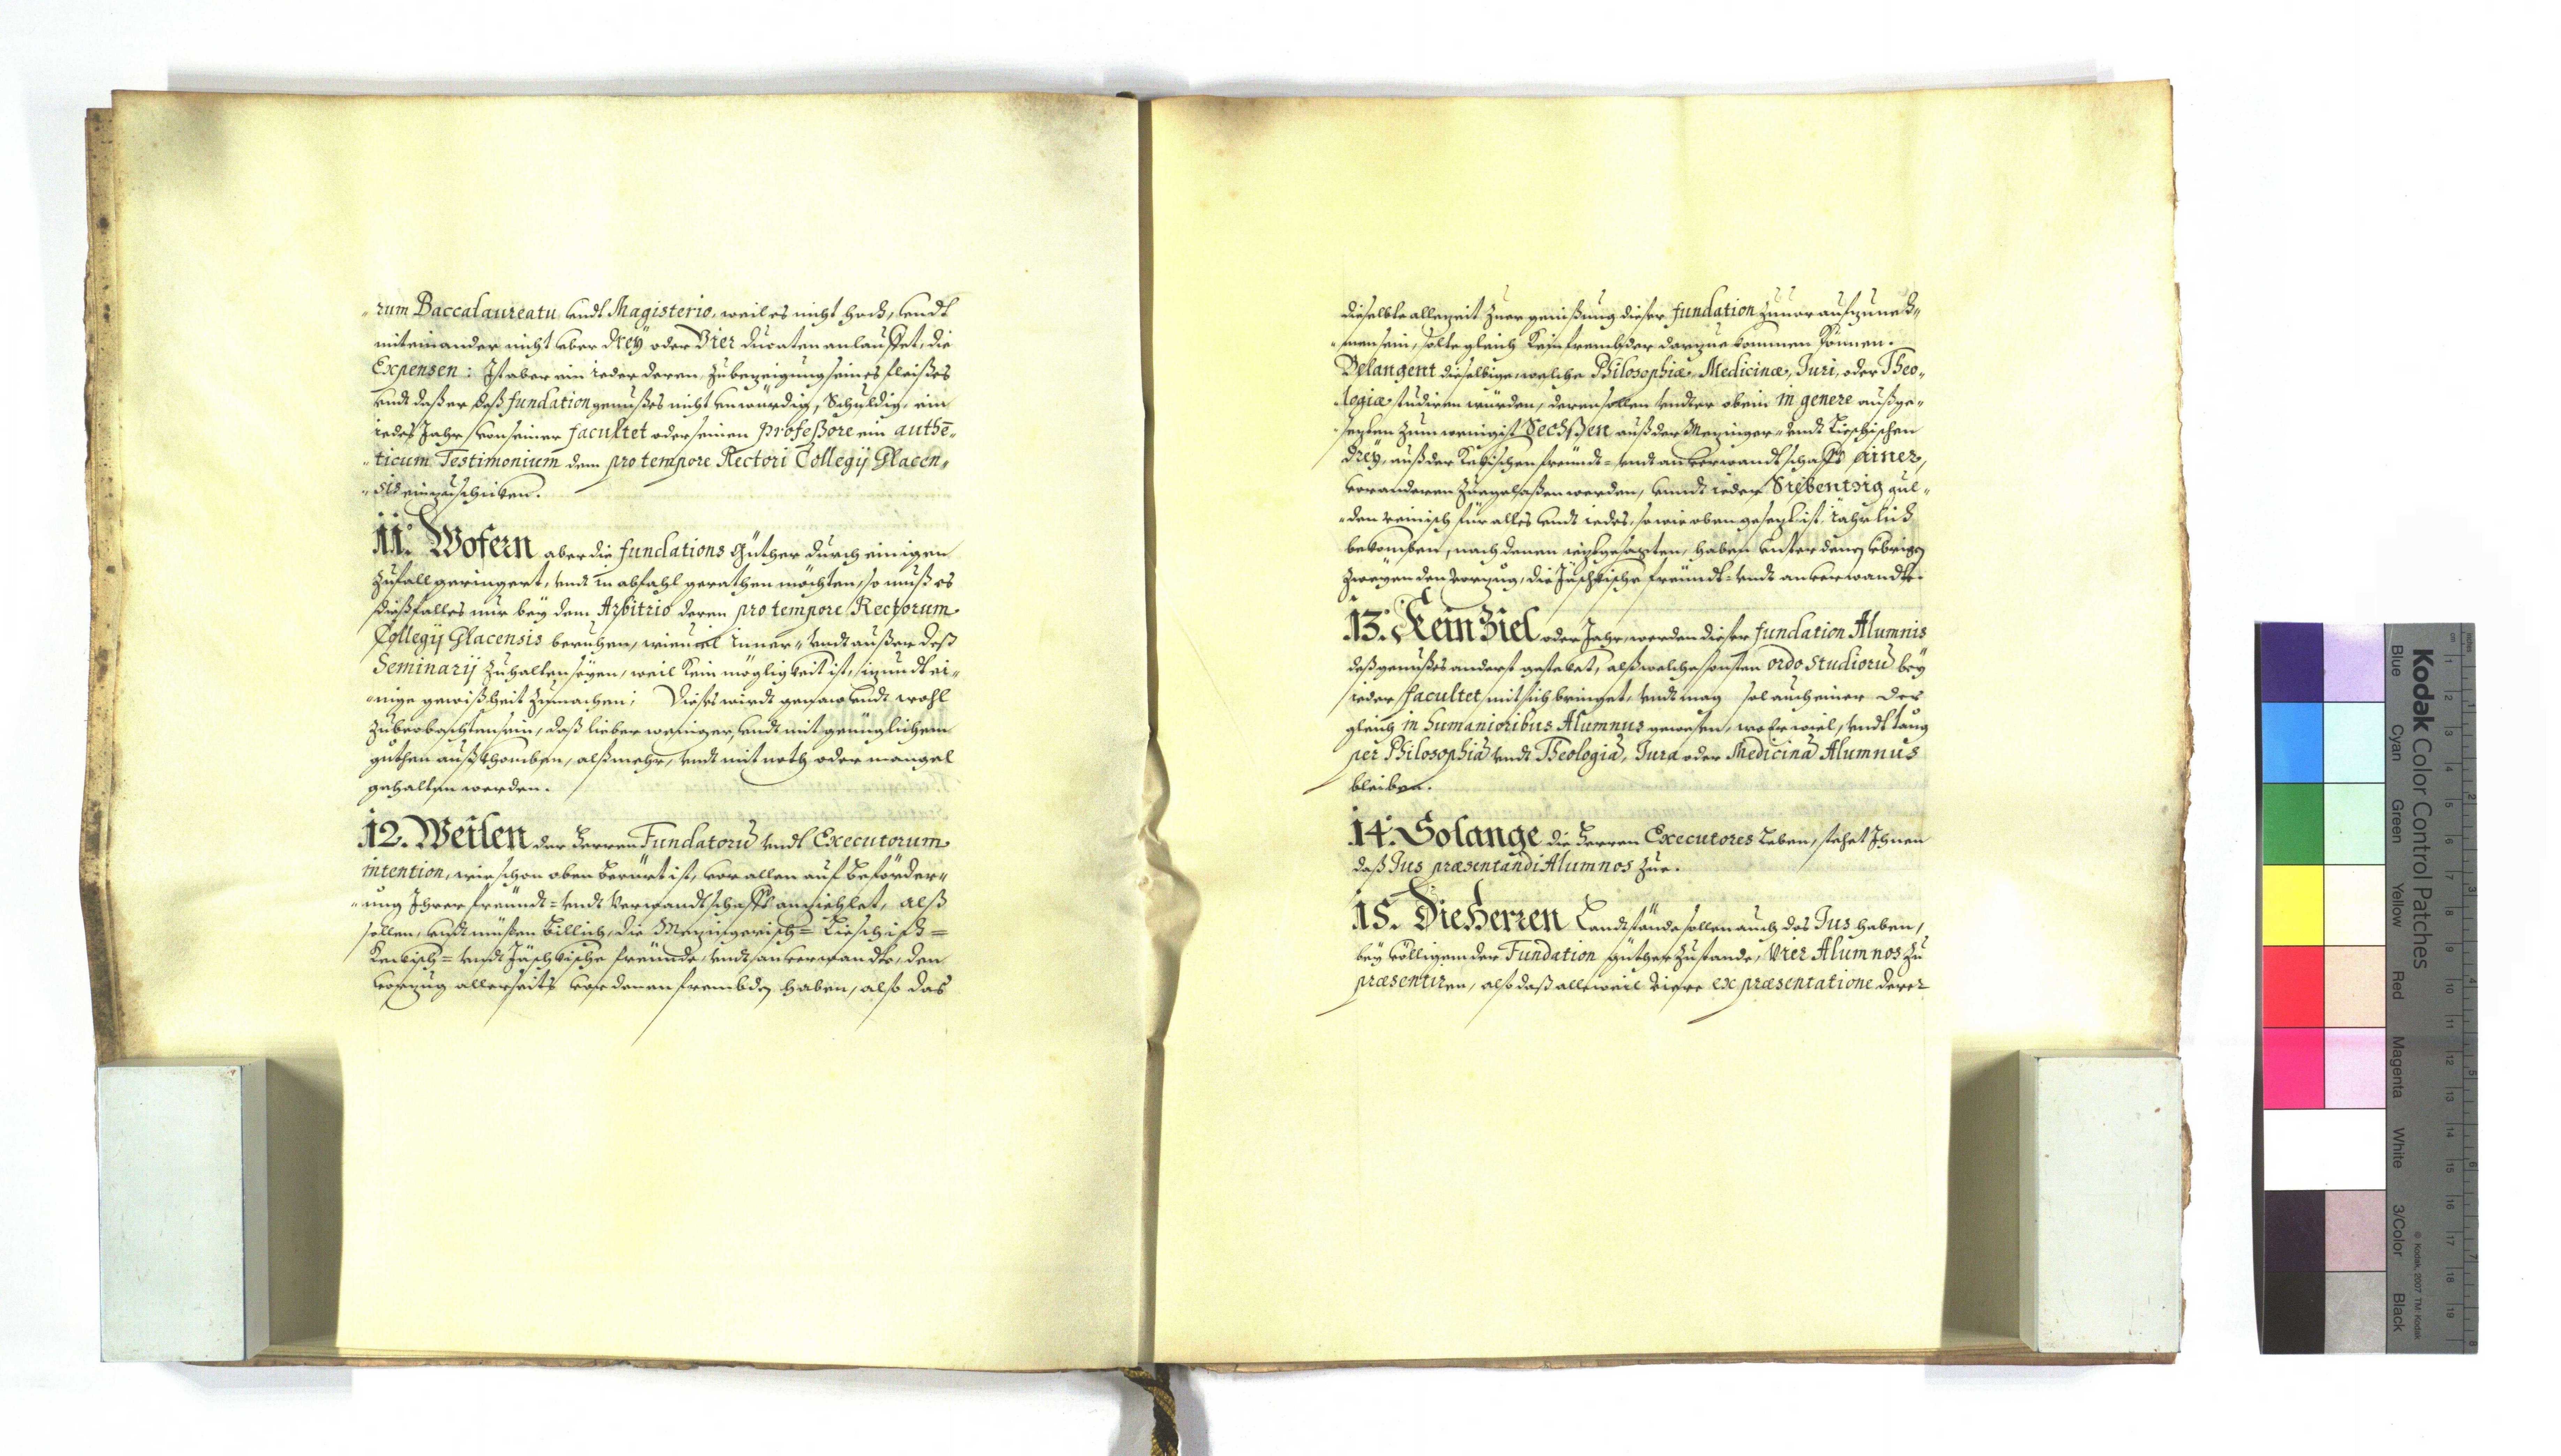 „rum Baccalaureatu undt Magisterio, weil es nicht hoch, undt
miteinander nicht uber dreÿ oder Vier ducaten anlauffet, die
Expensen: Ist aber ein ieder deren, zu bezeigung seines fleißes
undt daß er deß fundation genußes nicht unwürdig, Schuldig, ein
iedes Jahr von seiner facultet oder seinen Profeßore ein authē„
„ticum Testimonium dem pro tempore Rectori Collegÿ Glacen„
„sis einzuschicken.
11. Wofern aber die fundations Güther durch einigen
Zufall geringert, undt in abfahl gerathen möchten, so muß es
dießfalles nur beÿ dem Arbitrio deren pro tempore Rectorum
Collegÿ Glacensis beruhen, wieuiel inner„ undt außer deß
Seminarÿ zu halten seÿen, weil kein mögligkeit ist, hierundt ei„
„nige gewißheit zumachen; Dieses wirdt genaw undt wohl
zubeobachten sein, daß lieber weniger, undt mit genüglichem
guthen außkhomben, alß mehr, undt mit noth oder mangel
gehalten werden.
12. Weilen der Herren Fundatorū undt Executorum
intention, wie schon oben berürt ist, vor allen auf beförder„
„ung Ihrer freündt= undt Verwandtschafft anziehlet, alß
sollen, undt müßen billich, die Mezingerisch= Lieschisch=
Keckisch= undt Jäschkische freünde, undt anverwandte, den
vorzug allerseits vor denen frembdē haben, also das
dieselbte allezeit zuer genißung dieser fundation zuuor aufzuneh„
„men sein, solte gleich kein frembder darzue kommen können.
Belangent dieselbige, welche Philosophiæ, Medicinæ, Juri, oder Theo„
„logiæ studiren würden, deren sollen undter obein in genere außge„
„sezten zum wenigist Sechßen auß der Mezinger„ undt Lieschischen
dreÿ, auß der Keckischen freündt= undt anverwandtschafft einer,
vor anderen zuegelaßen werden, undt ieder Siebentzig gul„
„den reinisch für alles undt iedes, so wie oben gesezt ist, Jahrlich
bekomben, nach denen iezt gesagten, haben unter denē übrigē
zweÿen den vorzug, die Jäschkische freündt= undt anverwandte.
13. Kein Ziel oder Jahr, werden dieser fundation Alumnis
deß genußes anderst gesteket, alß welche sonsten ordo studiorū beÿ
ieder facultet mit sich bringet, undt mag sol auch einer der
gleich in humanioribus Alumnus gewesen, wo Er wiel, undt taug
per Philosophiā undt Theologiā, Jura oder Medicinā Alumnus
bleiben.
14. Solange die Herren Executores Leben, stehet Ihnen
daß Jus præsentandi Alumnos zue.
15. Die Herren Landtstände sollen auch das Jus haben,
beÿ völligem der Fundation güther Zustande, Vier Alumnos zu
præsentiren, also daß alleweil Viere ex præsentatione derer